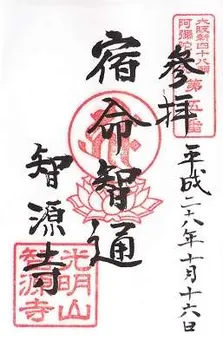 大阪新四十八願
阿彌陀
第五番
参拝
平成二十八年十月十六日
宿命智通
智源寺
光明山
智源寺